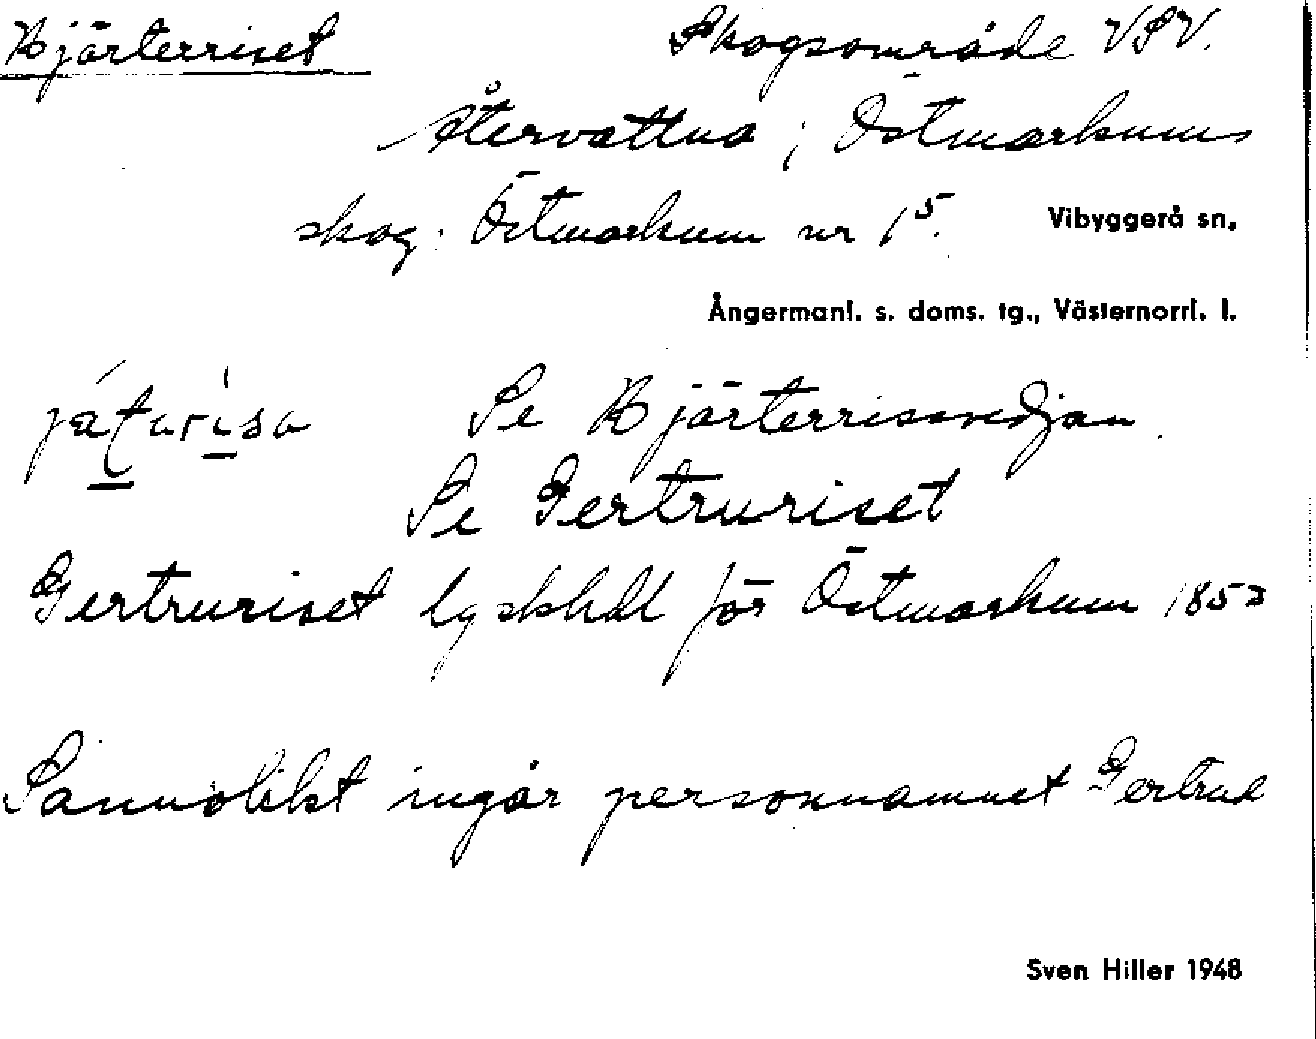 Kjärterriset Skogsområde VSV.
Återvattna; Östmarkums
skog. Östmarkum nr 1⁵. Vibyggerå sn,
Ångermanl. s. doms. tg., Västernorrl. l.
Se Kjärterrisevedjan.
Se Gertruriset
Gertruriset lgskhdl för Östmarkum 185
Sannolikt ingår personnamnet Gertrud
Sven Hiller 1948